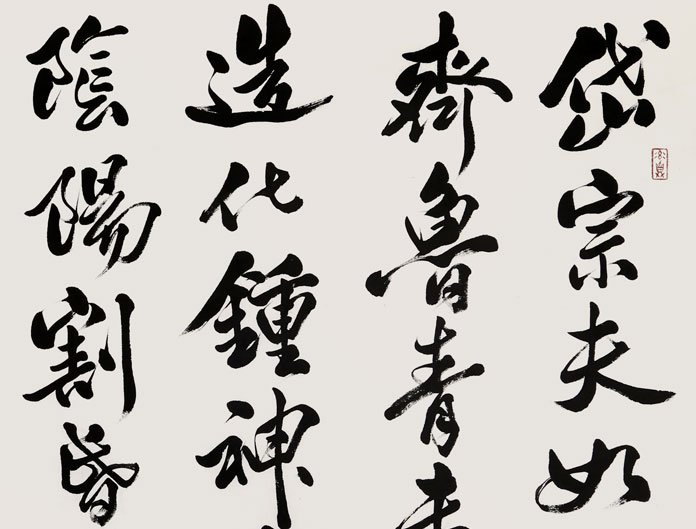 岱宗夫如
齊魯青未
造化鍾神
陰陽割昏